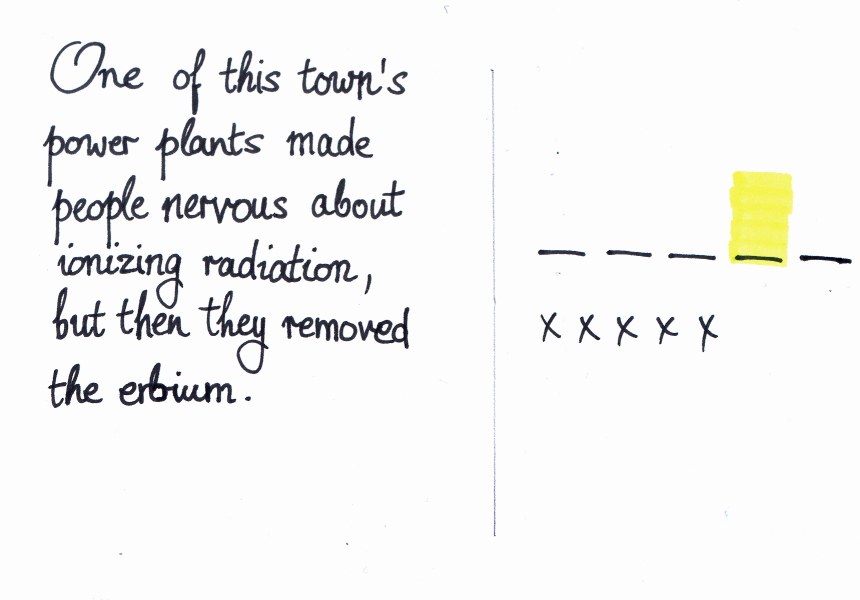 One of this town's
power plants made
people nervous about
ionizing radiation,
but then they removed
the erbium.
x x x x x